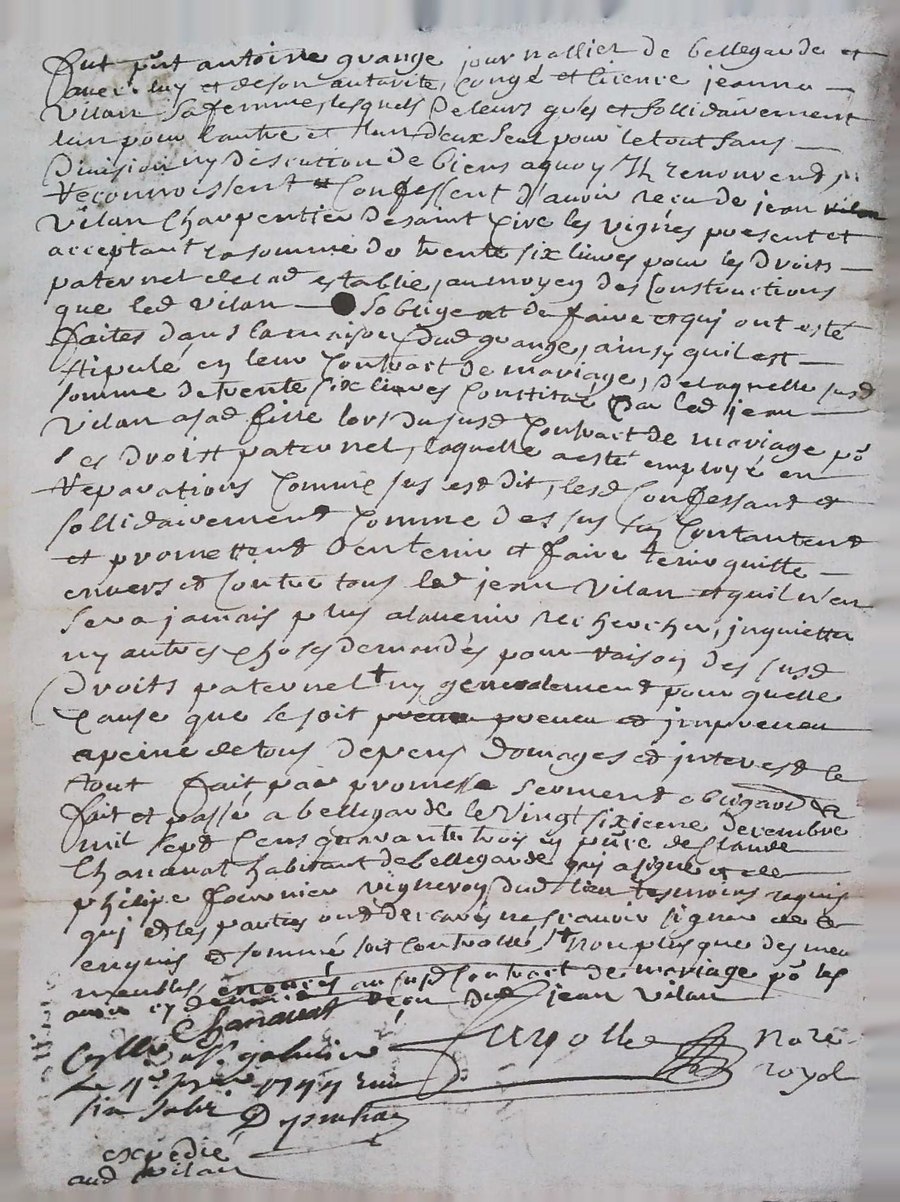 fut pnt antoine grange journallier de bellegarde et
avec luy et de son autorité, congé et licence jeanne
vilan sa femme, lesquels de leurs grés et sollidairement
lun pour l'autre et lun deux seul pour le tout sans
division ny discution de biens a quoy ils renoncend,
reconnoissent et confessent d'avoir recu de jean vilan
vilan charpentier de saint cire les vignes present et
acceptant la somme de trente six livres pour les droits
paternel de lad establie, au moyen des constructions
que led vilan s'obligeat de faire et qui ont esté
faites dans la maison dud grange, ainsy quil est
stipulé en leur contract de mariage, de laquelle susd
somme de trente six livres constitué par led jean
vilan a sad fille lors du susd contract de mariage po
ses droits paternel, laquelle a esté employé en
reparations comme sus est dit, lesd confessant et
sollidairement comme dessus sen contantent
et promettent den tenir et faire tenir quitte
envers et contre tous led jean vilan et quil n'en
sera jamais plus a l'avenir recherchés, inquietter
ny autres choses demandés pour raison des susd
droits paternel + ny generalement pour quelle
cause que se soit preveu et impreveu
a peine de tous depens domages et interest le
tout fait par promesse serment obligaon &a
fait et passé a bellegarde le vingt sixieme decembre
mil sept cens quarante trois en pnce de claude
Chanavat habitant de bellegarde qui a signé et de
philipe fournier vigneron dud lieu tesmoins requis
qui et les parties ont declarés ne scavoir signer de ce
enquis et sommé soit controllé, + non plus que des meu
meubles enoncés au susd contract de mariage po les
avoir cy devant recu dud jean vilan
Chanavat
nore
royol
1744
expedié
aud vilan